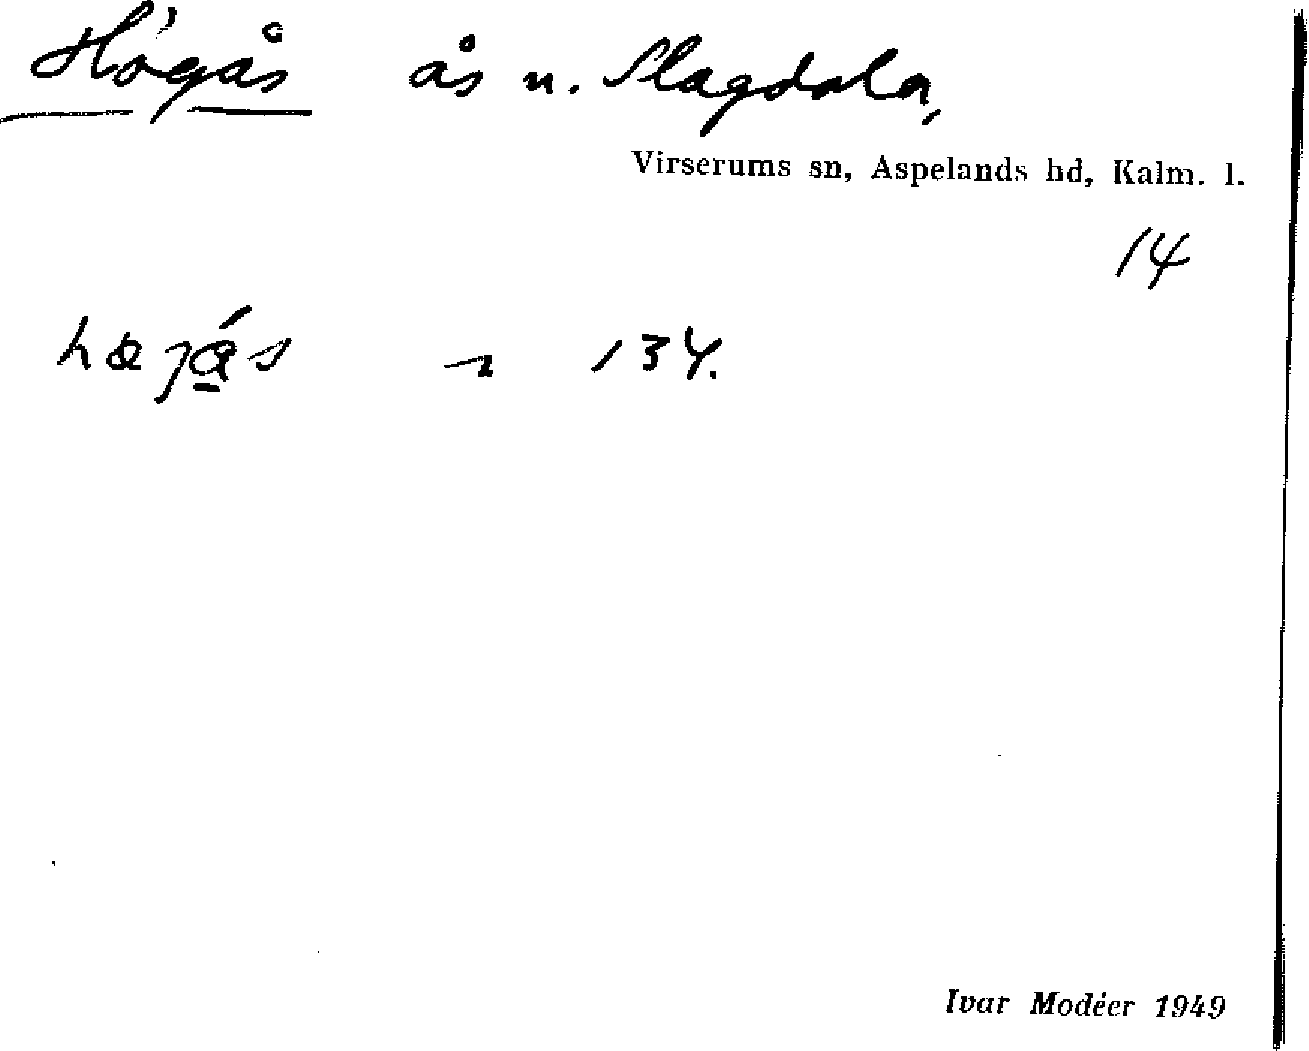 Högås ås n. Slagdala,
Virserums sn, Aspelands hd, Kalm. l.
14
134.
Ivar Modéer 1949